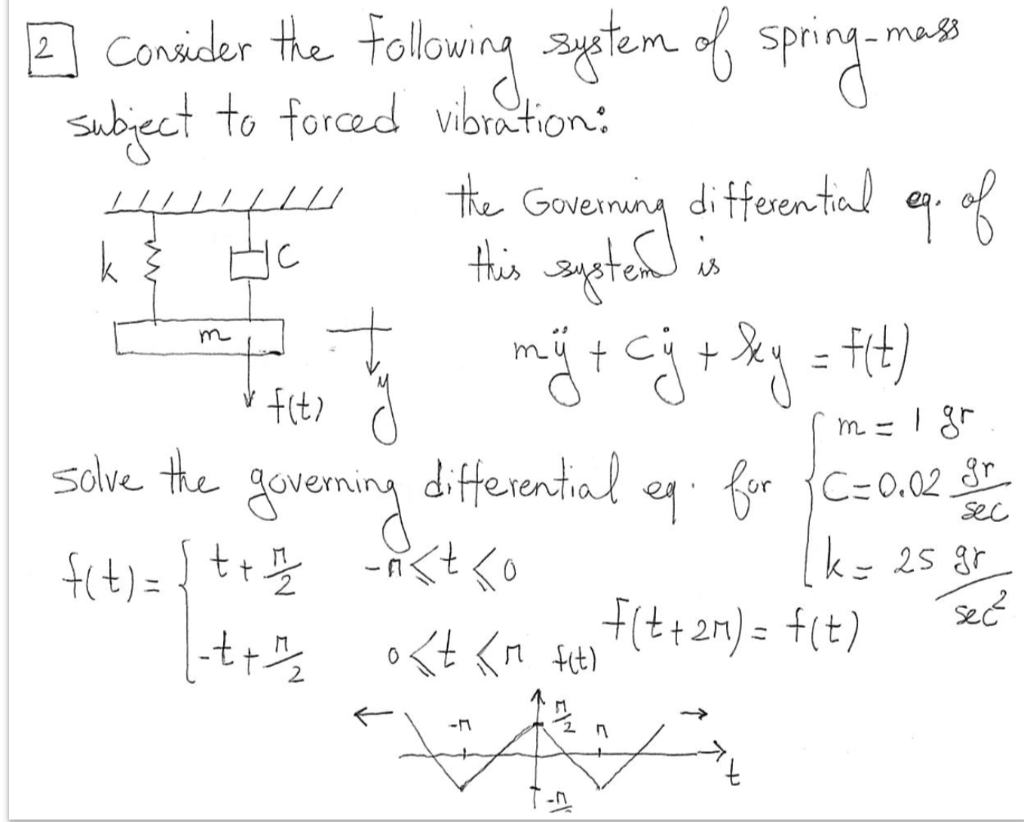 2 Consider the following system of spring-mass
subject to forced vibration:
the Governing differential eq. of
this system is
k
C
m
f(t)
y
mÿ + cẏ + ky = f(t)
m = 1 gr.
solve the governing differential eq. for
C = 0.02 gr/sec
k = 25 gr/sec²
f(t) = { t + π/2 -π ≤ t ≤ 0
-t + π/2 0 ≤ t ≤ π
f(t+2π) = f(t)
f(t)
π/2
-π
π
t
-π/2